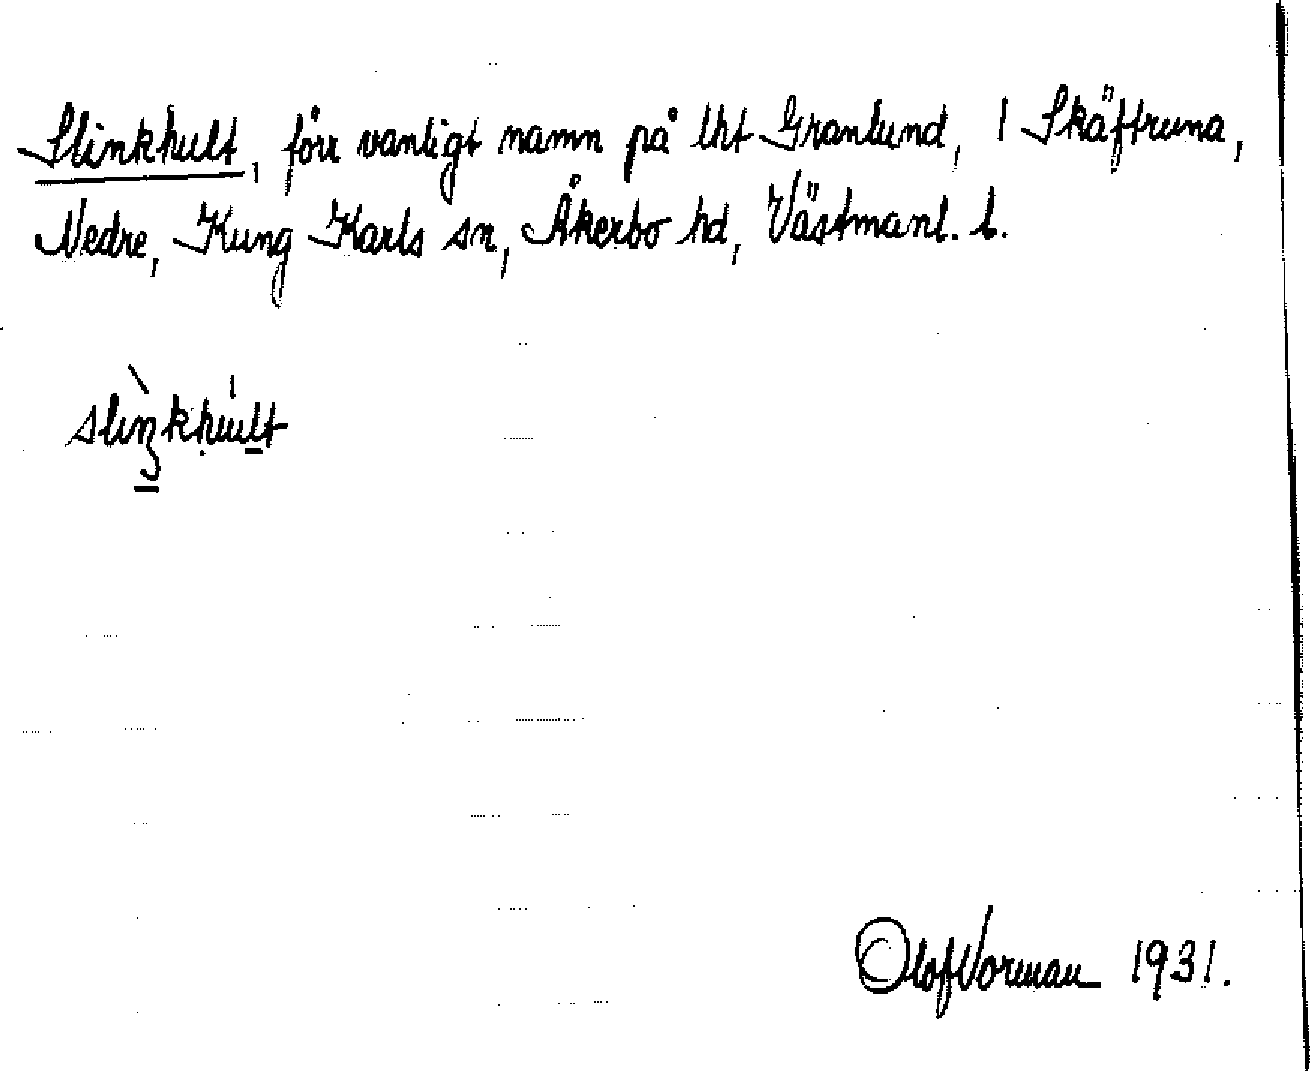 Slinkhult, förr vanligt namn på lht Granlund, 1 Skäftruna,
Nedre, Kung Karls sn, Åkerbo hd, Västmanl. l.
Olof Vorman 1931.